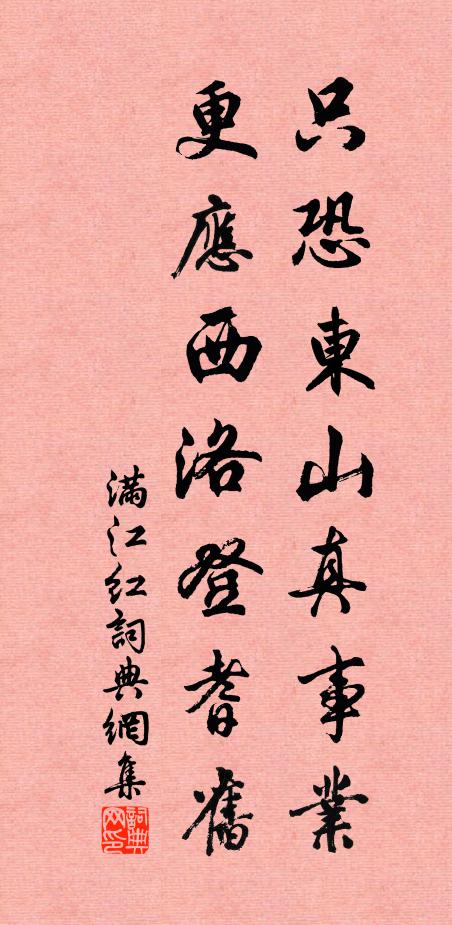 只恐東山真事業
更應西洛登耆舊
滿江紅詞典網集
詞典
网印